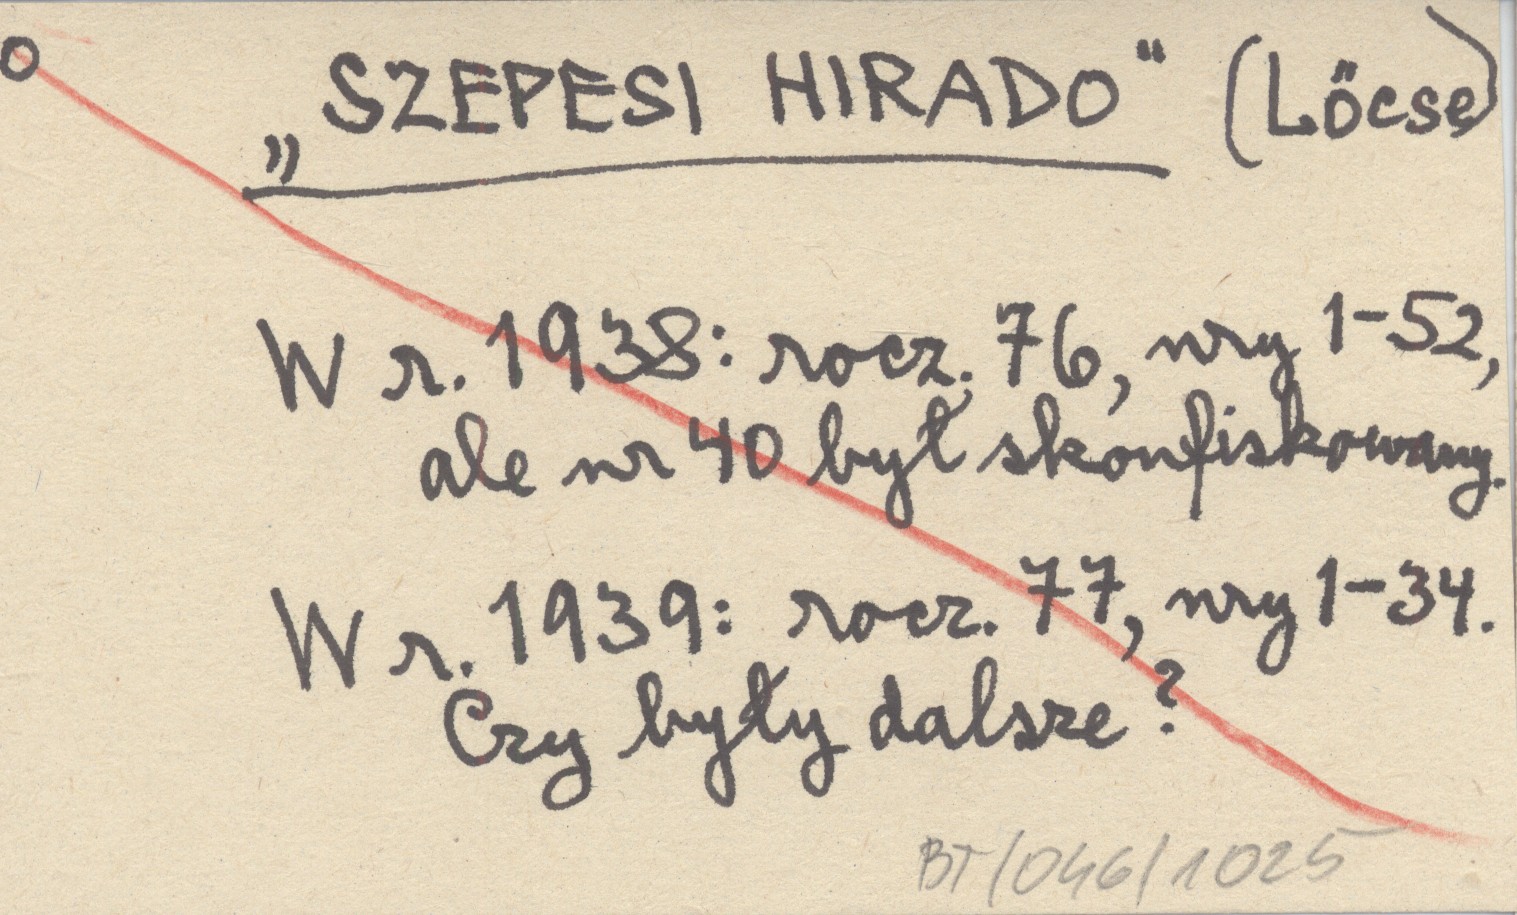 „SZEPESI HIRADO" (Lőcse)
W r. 1938: rocz. 76, nry 1-52,
ale nr 40 był skonfiskowany.
W r. 1939: rocz. 77, nry 1-34.
Czy były dalsze?
BT/046/1025